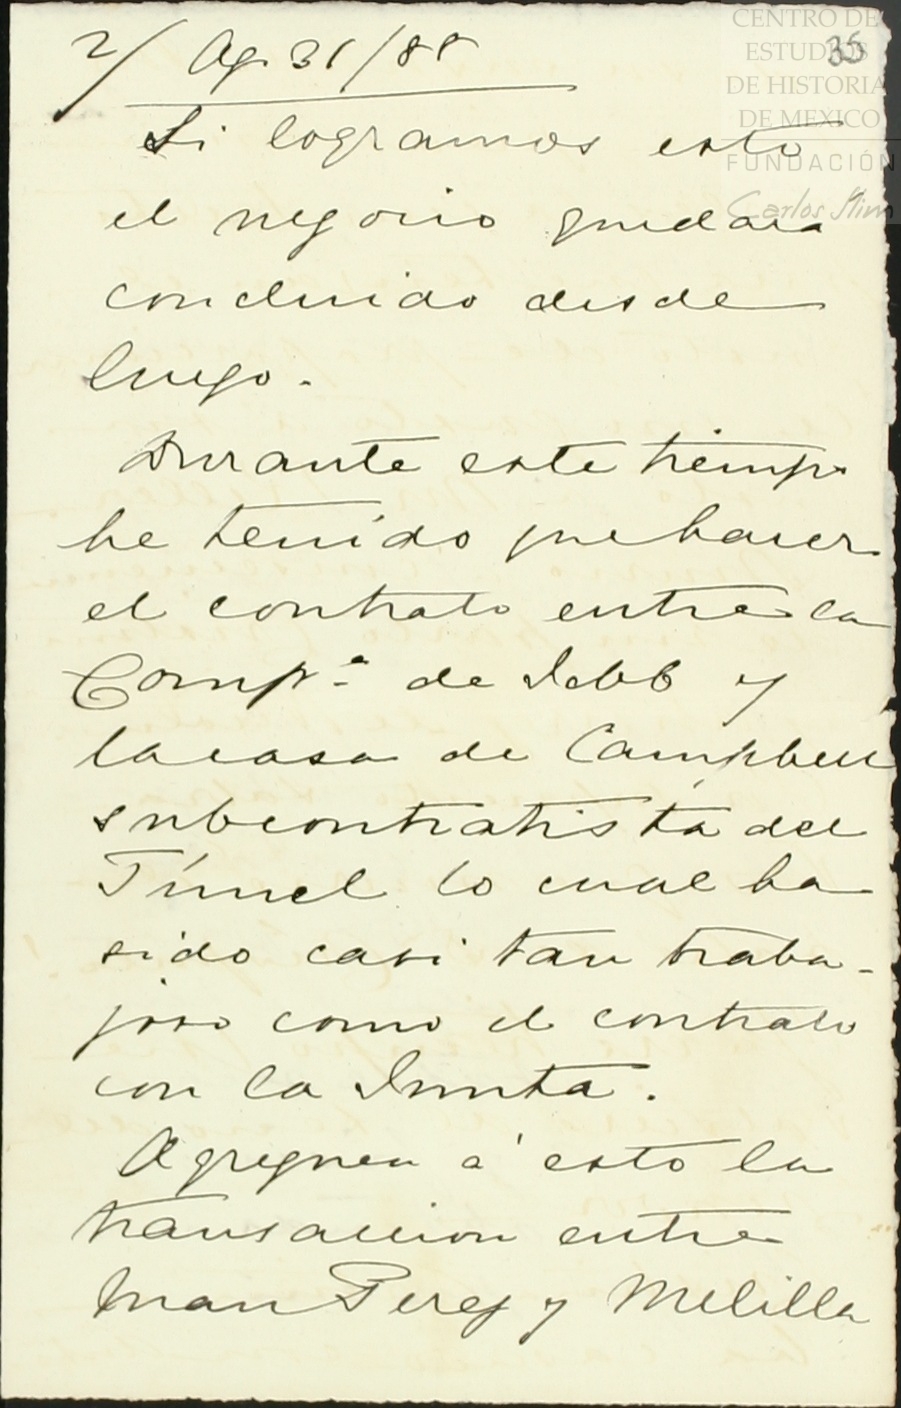 2/ Ag. 31/88
35
CENTRO DE
ESTUDIOS
DE HISTORIA
DE MEXICO
FUNDACIÓN
Carlos Slim
Si logramos esto
el negocio quedara
concluido desde
luego.
Durante este tiempo
he tenido que hacer
el contrato entre la
Compª de y
la casa de Campbell
subcontratista del
Túnel lo cual ha
sido casi tan traba-
joso como el contrato
con la Junta.
Agreguen á esto la
transaccion entre
Juan Perez y Melilla